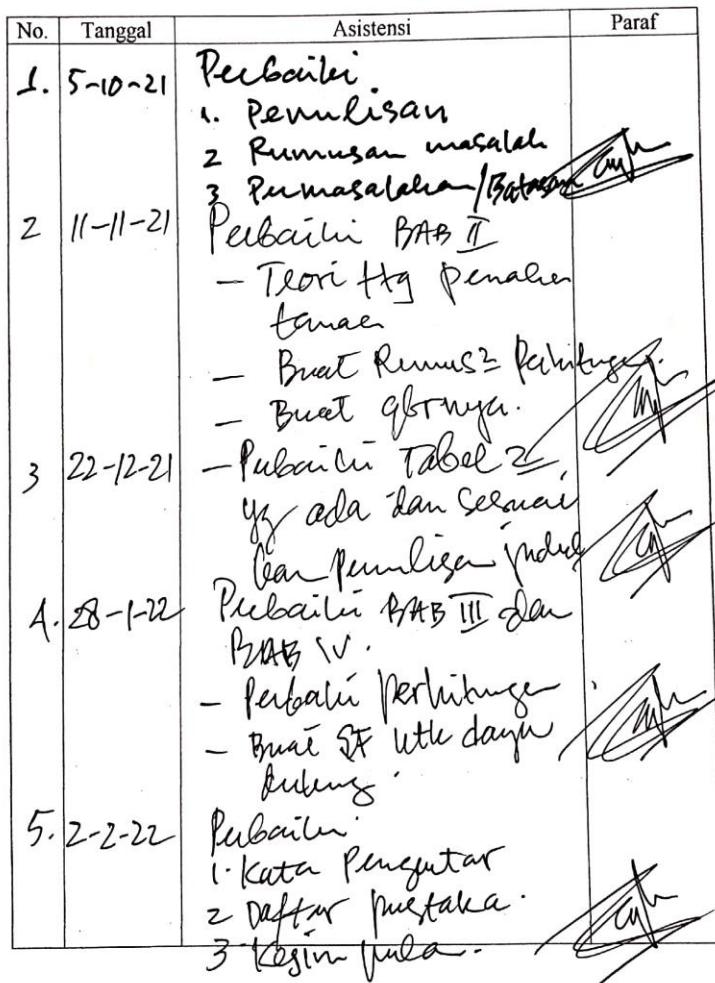 No. Tanggal Asistensi Paraf
1. 5-10-21 Perbaiki
1. Penulisan
2 Rumusan masalah
3 Permasalahan/Batasan
2 11-11-21 Perbaiki BAB II
– Teori ttg penahan
tanah
– Buat Rumus2 Perhitungan.
– Buat gbrnya.
3 22-12-21 – Perbaiki Tabel 2
yg ada dan sesuai
kan penulisan judul
4. 28-1-22 Perbaiki BAB III dan
BAB IV.
– Perbaiki Perhitungan
– Buat SF utk daya
dukung.
5. 2-2-22 Perbaiki
1. Kata Pengantar
2 Daftar pustaka.
3 Kesimpulan.